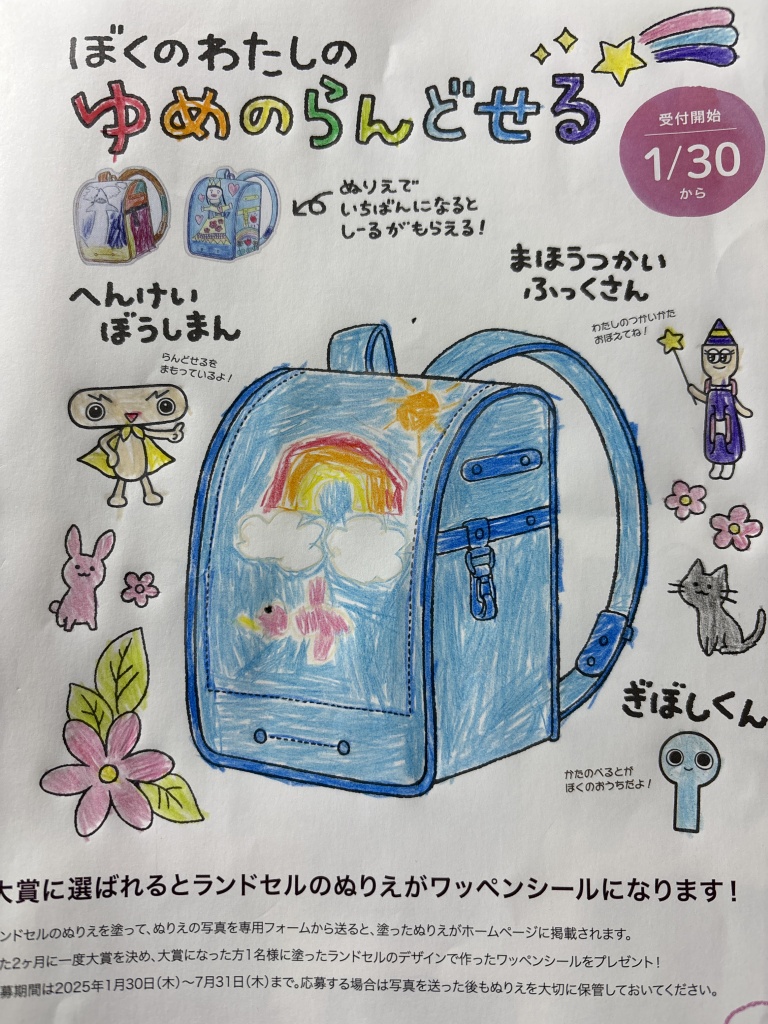 ぼくのわたしの
ゆめのらんどせる
受付開始
1/30
から
ぬりえで
いちばんになると
しーるがもらえる!
まほうつかい
ふっくさん
わたしのつかいかた
おぼえてね!
へんけい
ぼうしまん
らんどせるを
まもっているよ!
ぎぼしくん
かたのべるとが
ぼくのおうちだよ!
大賞に選ばれるとランドセルのぬりえがワッペンシールになります!
ンドセルのぬりえを塗って、ぬりえの写真を専用フォームから送ると、塗ったぬりえがホームページに掲載されます。
た2ヶ月に一度大賞を決め、大賞になった方1名様に塗ったランドセルのデザインで作ったワッペンシールをプレゼント!
募期間は2025年1月30日(木)〜7月31日(木)まで。応募する場合は写真を送った後もぬりえを大切に保管しておいてください。